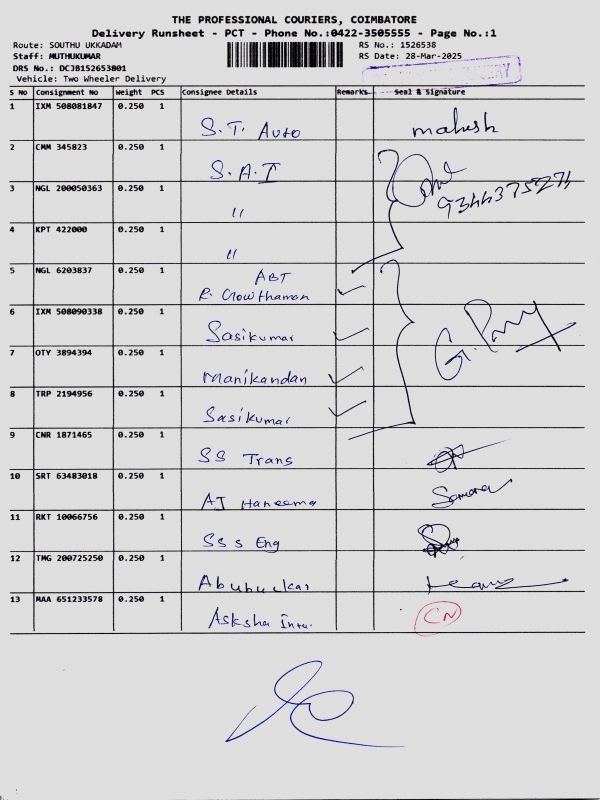 THE PROFESSIONAL COURIERS, COIMBATORE
Delivery Runsheet - PCT - Phone No.:0422-3505555 - Page No.:1
Route: SOUTHU UKKADAM RS No.: 1526538
Staff: MUTHUKUMAR RS Date: 28-Mar-2025
DRS No.: DCJB152653801
Vehicle: Two Wheeler Delivery
S No Consignment No Weight PCS Consignee Details Remarks Seal & Signature
1 IXM 508081847 0.250 1 S.T. Auto mahesh
2 CMM 345823 0.250 1 S.A.I
3 NGL 200050363 0.250 1 〃 9344375274
4 KPT 422000 0.250 1 〃
5 NGL 6203837 0.250 1 ABT
R. Gowthaman ✓
6 IXM 508090338 0.250 1 Sasikumar ✓
7 OTY 3894394 0.250 1 Manikandan ✓
8 TRP 2194956 0.250 1 Sasikumar ✓
9 CNR 1871465 0.250 1 SS Trans
10 SRT 63483018 0.250 1 AJ Haneema
11 RKT 10066756 0.250 1 SS s Eng
12 TMG 200725250 0.250 1 Abubuckar
13 MAA 651233578 0.250 1 Asksha Inter. CN